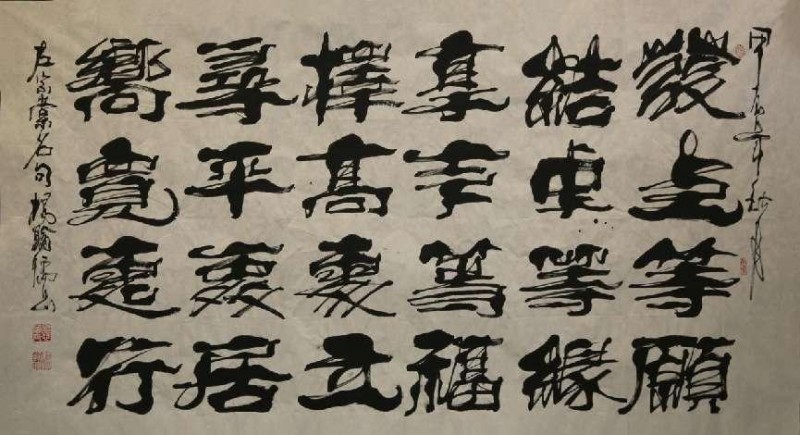 甲辰年秋月
發上等願
結中等緣
享下等福
擇高處立
尋平處居
嚮寬處行
左宗棠名句楊